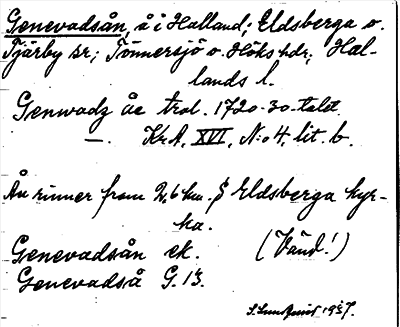 Genevadsån, å i Halland; Eldsberga o.
Tjärby sr; Tönnersjö o. Höks hdr, Hal-
lands l.
Genwadz åe trol. 1720-30-talet
—. Kr.A. XVI, N:o 4, lit. b.
Ån rinner fram 2,6 km. S Eldsberga kyr-
ka.
Genevadsån ek. (Vänd!)
Genevadså G. 13.
S. Lundquist 1937.